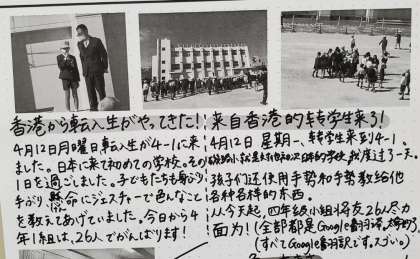 香港から転入生がやってきた!
4月12日月曜日転入生が4-1に来
ました。日本に来て初めての学校。その
1日を過ごしました。子どもたちも身ぶり
手ぶり 懸命にジェスチャーで色んなこと
を教えてあげていました。今日から4
年1組は、26人でがんばります!
来自香港的转学生来了!
4月12日 星期一、转学生来到4-1。
日本的学校,我度过了一天。
孩子们还使用手势和手势教给他
各种各样的东西。
从今天起,四年级小组将友26人尽力
面为!(全部都是Google翻译。
(すべてGoogle翻訳です。スゴい。)